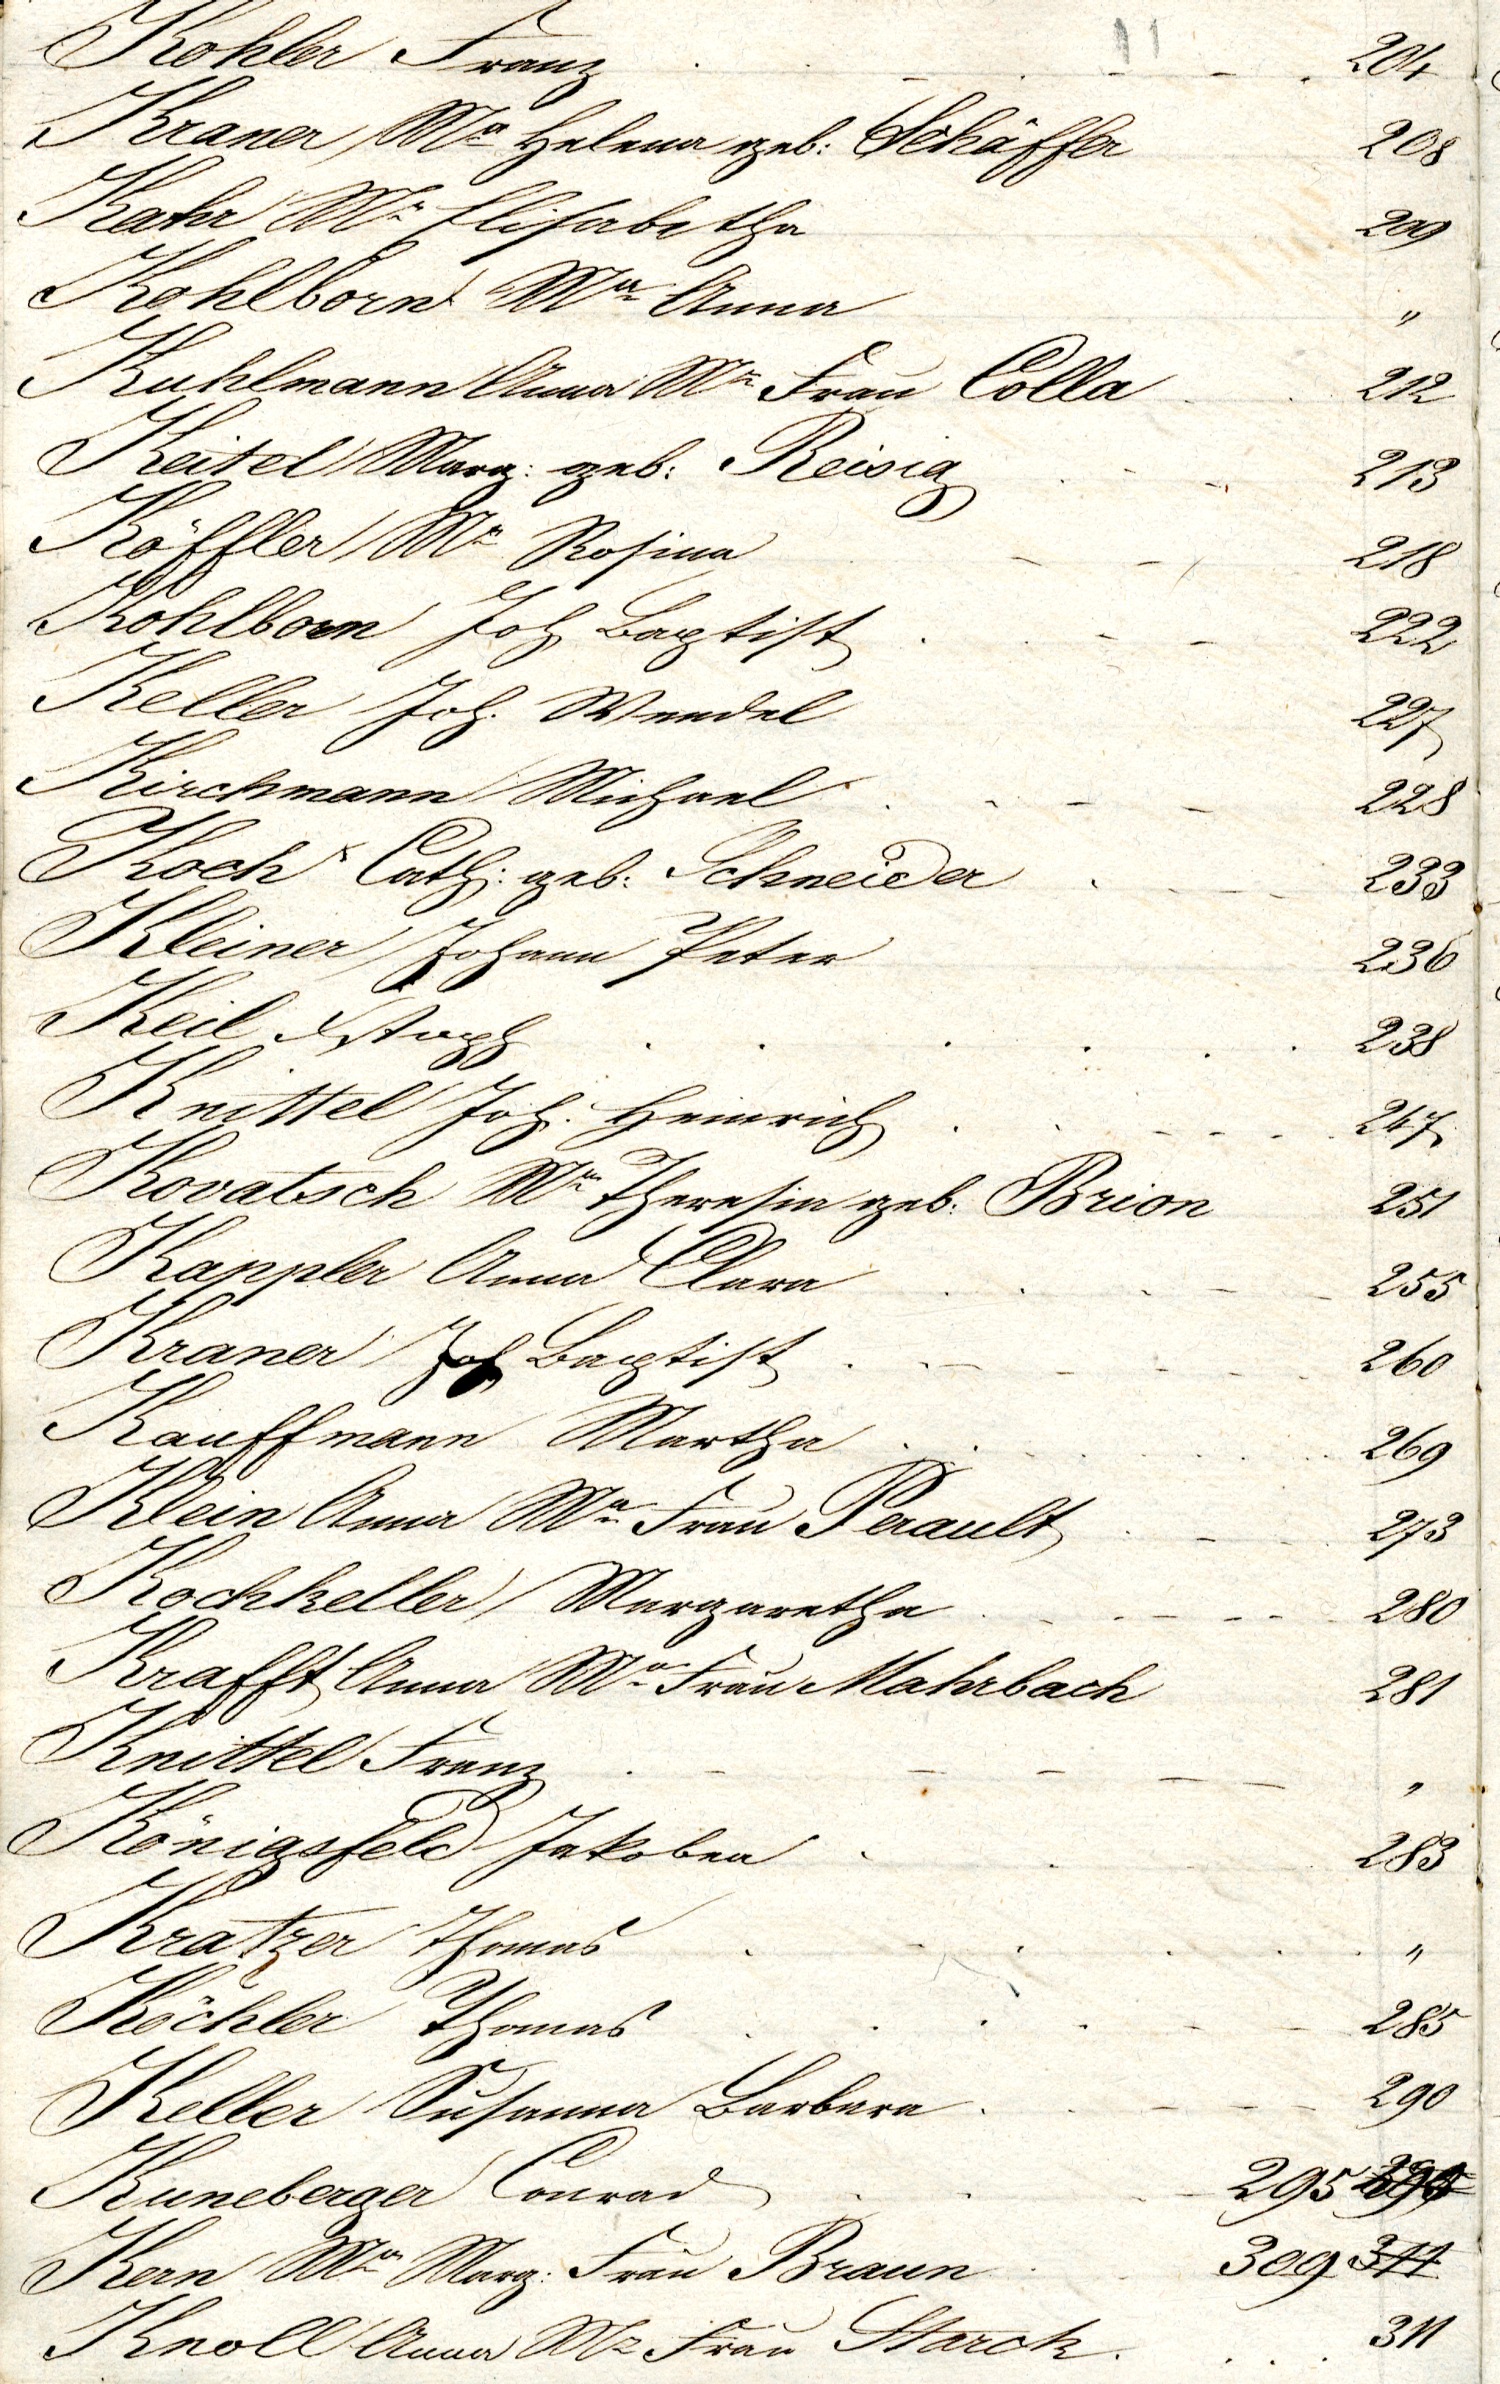 11
Kohler Franz . . . - . - - . 204
Kraner Mª Helena geb: Schäffer 208
Kahr Mª Elisabetha 209
Kohlborn Mª Anna "
Kuhlmann Anna Mª Frau Colla . . 212
Keitel Marg: geb: Reisig . - - 213
Köffler Mª Rosina - - - 218
Kohlborn Joh Baptist . . - - 222
Keller Joh. Wendel 227
Kirchmann Michael . - - - 228
Koch Cath: geb: Schneider . . - - - 233
Kleiner Johann Peter 236
Keil . . . . . . 238
Knittel Joh. Heinrich . . . - - - . 247
Kovatsch Mª Theresia geb. Brion 251
Kappler Anna Clara . . . - - 255
Kraner Joh Baptist . - - - - - 260
Kauffmann Martha . . . . . . 269
Klein Anna Mª Frau Perault . - - 273
Kochkeller Margaretha . - - - - - 280
Krafft Anna Mª Frau Mahrbach 281
Knittel Franz . - - - - - "
Königsfeld Jakobea . . . - 283
Kratzer Thomas . . . . . . "
Köchler Thomas . . . . - - 285
Keller Susanna Barbara . . - - - - 290
Kuneberger Conrad . . - - 295
Kern Mª Marg: Frau Braun . . 309 311
Knoll Anna Mª Frau Starck . . . . 311